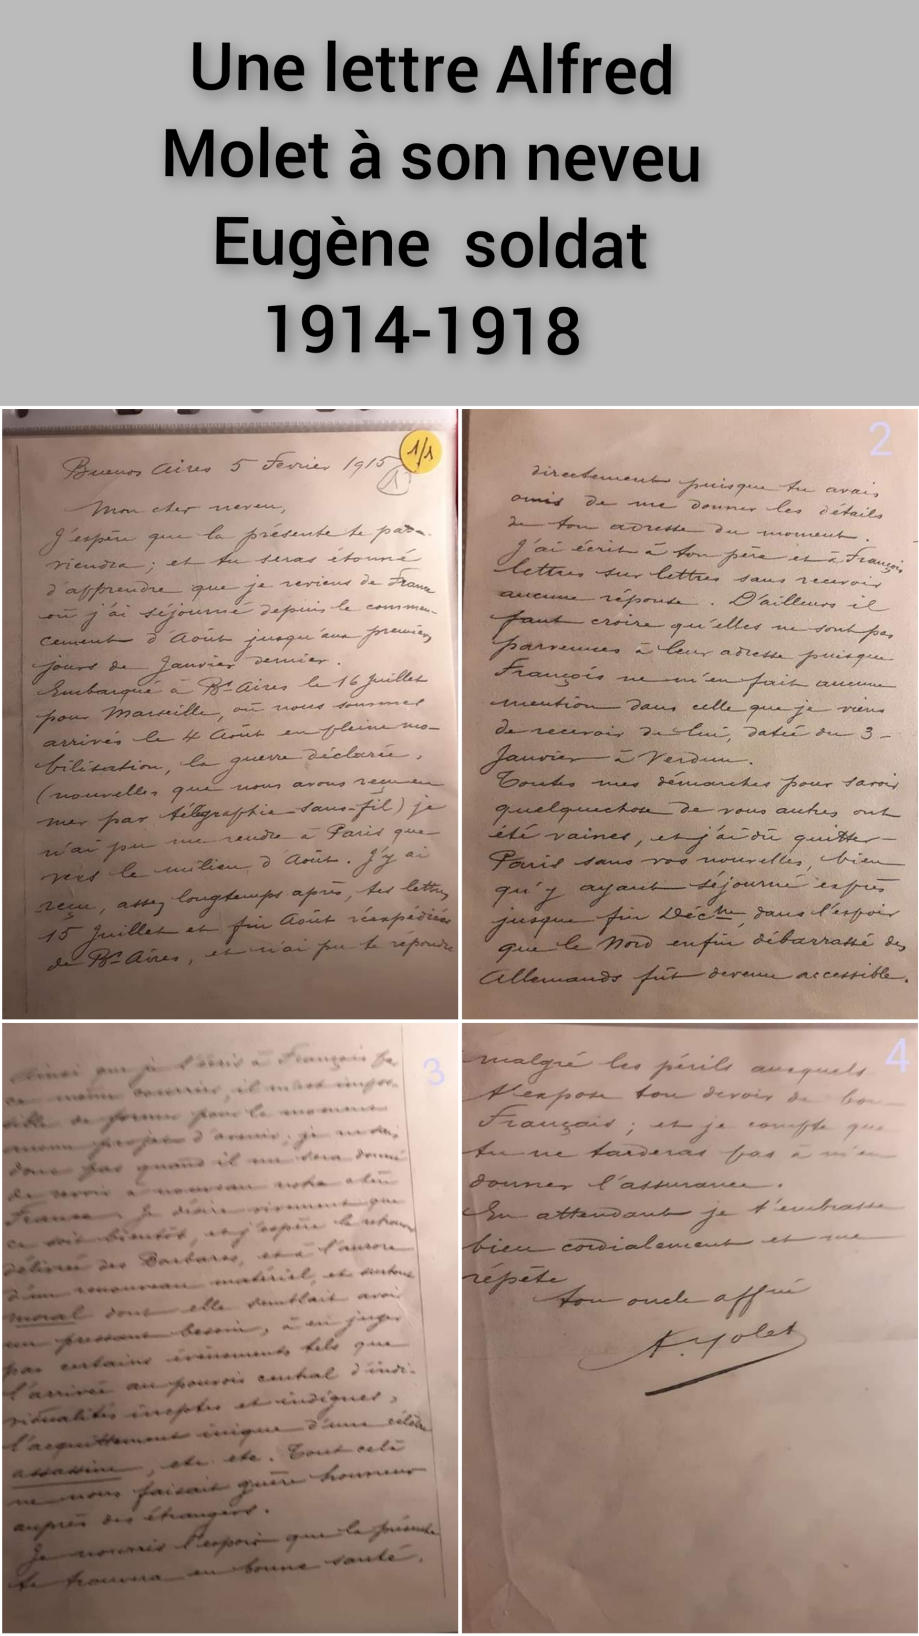 Une lettre Alfred
Molet à son neveu
Eugène soldat
1914-1918
1/1
Buenos Aires 5 Fevrier 1915
1
Mon cher neveu,
J'espère que la présente te par-
viendra ; et tu seras étonné
d'apprendre que je reviens de France
où j'ai séjourné depuis le commen-
cement d'Août jusqu'aux premiers
jours de Janvier dernier.
Embarqué à Bs Aires le 16 Juillet
pour Marseille, où nous sommes
arrivés le 4 Août en pleine mo-
bilisation, la guerre déclarée,
(nouvelles que nous avons reçu en
mer par télégraphie-sans-fil) je
n'ai pu me rendre à Paris que
vers le milieu d'Août. J'y ai
reçu, assez longtemps après, tes lettres
15 Juillet et fin Août réexpédiées
de Bs Aires, et n'ai pu te répondre
2
directement puisque tu avais
omis de me donner les détails
de ton adresse du moment.
J'ai écrit à ton père et à François
lettres sur lettres sans recevoir
aucune réponse. D'ailleurs il
faut croire qu'elles ne sont pas
parvenues à leur adresse puisque
François ne m'en fait aucune
mention dans celle que je viens
de recevoir de lui, datée du 3-
Janvier à Verdun.
Toutes mes démarches pour savoir
quelquechose de vous autres ont
été vaines, et j'ai dû quitter-
Paris sans vos nouvelles, bien
qu'y ayant séjourné exprès
jusque fin Décbre, dans l'espoir
que le Nord enfin débarrassé des
Allemands fût devenu accessible.
3
Ainsi que je l'écris à François par
ce même courrier, il m'est impos-
sible de former pour le moment
aucun projet d'avenir ; je ne sais
donc pas quand il me sera donné
de revoir à nouveau notre chère
France. Je désire vivement que
ce soit bientôt, et j'espère la retrouver
délivrée des Barbares, et à l'aurore
d'un renouveau matériel, et surtout
moral dont elle semblait avoir
un pressant besoin, à en juger
par certains événements tels que
l'arrivée au pouvoir central d'indi-
vidualités ineptes et indignes,
l'acquittement inique d'une célèbre
assassine, etc. etc. Tout cela
ne nous faisait guère honneur
auprès des étrangers.
Je nourris l'espoir que la présente
te trouvera en bonne santé,
4
malgré les périls auxquels
t'expose ton devoir de bon-
Français ; et je compte que
tu ne tarderas pas à m'en
donner l'assurance.
En attendant je t'embrasse
bien cordialement et me
répète
ton oncle affné
A. Molet